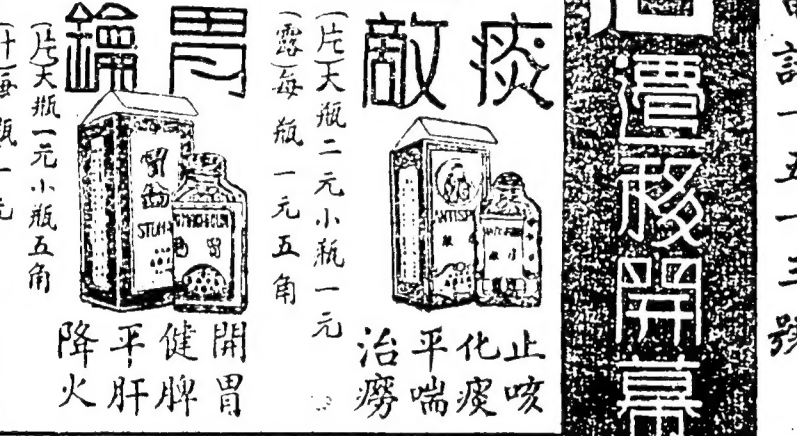 話一五一三號
遷移開幕
痰敵
(片)大瓶二元小瓶一元
(露)每瓶一元五角
ANTISP
止咳
化痰
平喘
治癆
胃鑰
(片)大瓶一元小瓶五角
每瓶一元
胃鑰
開胃
健脾
平肝
降火